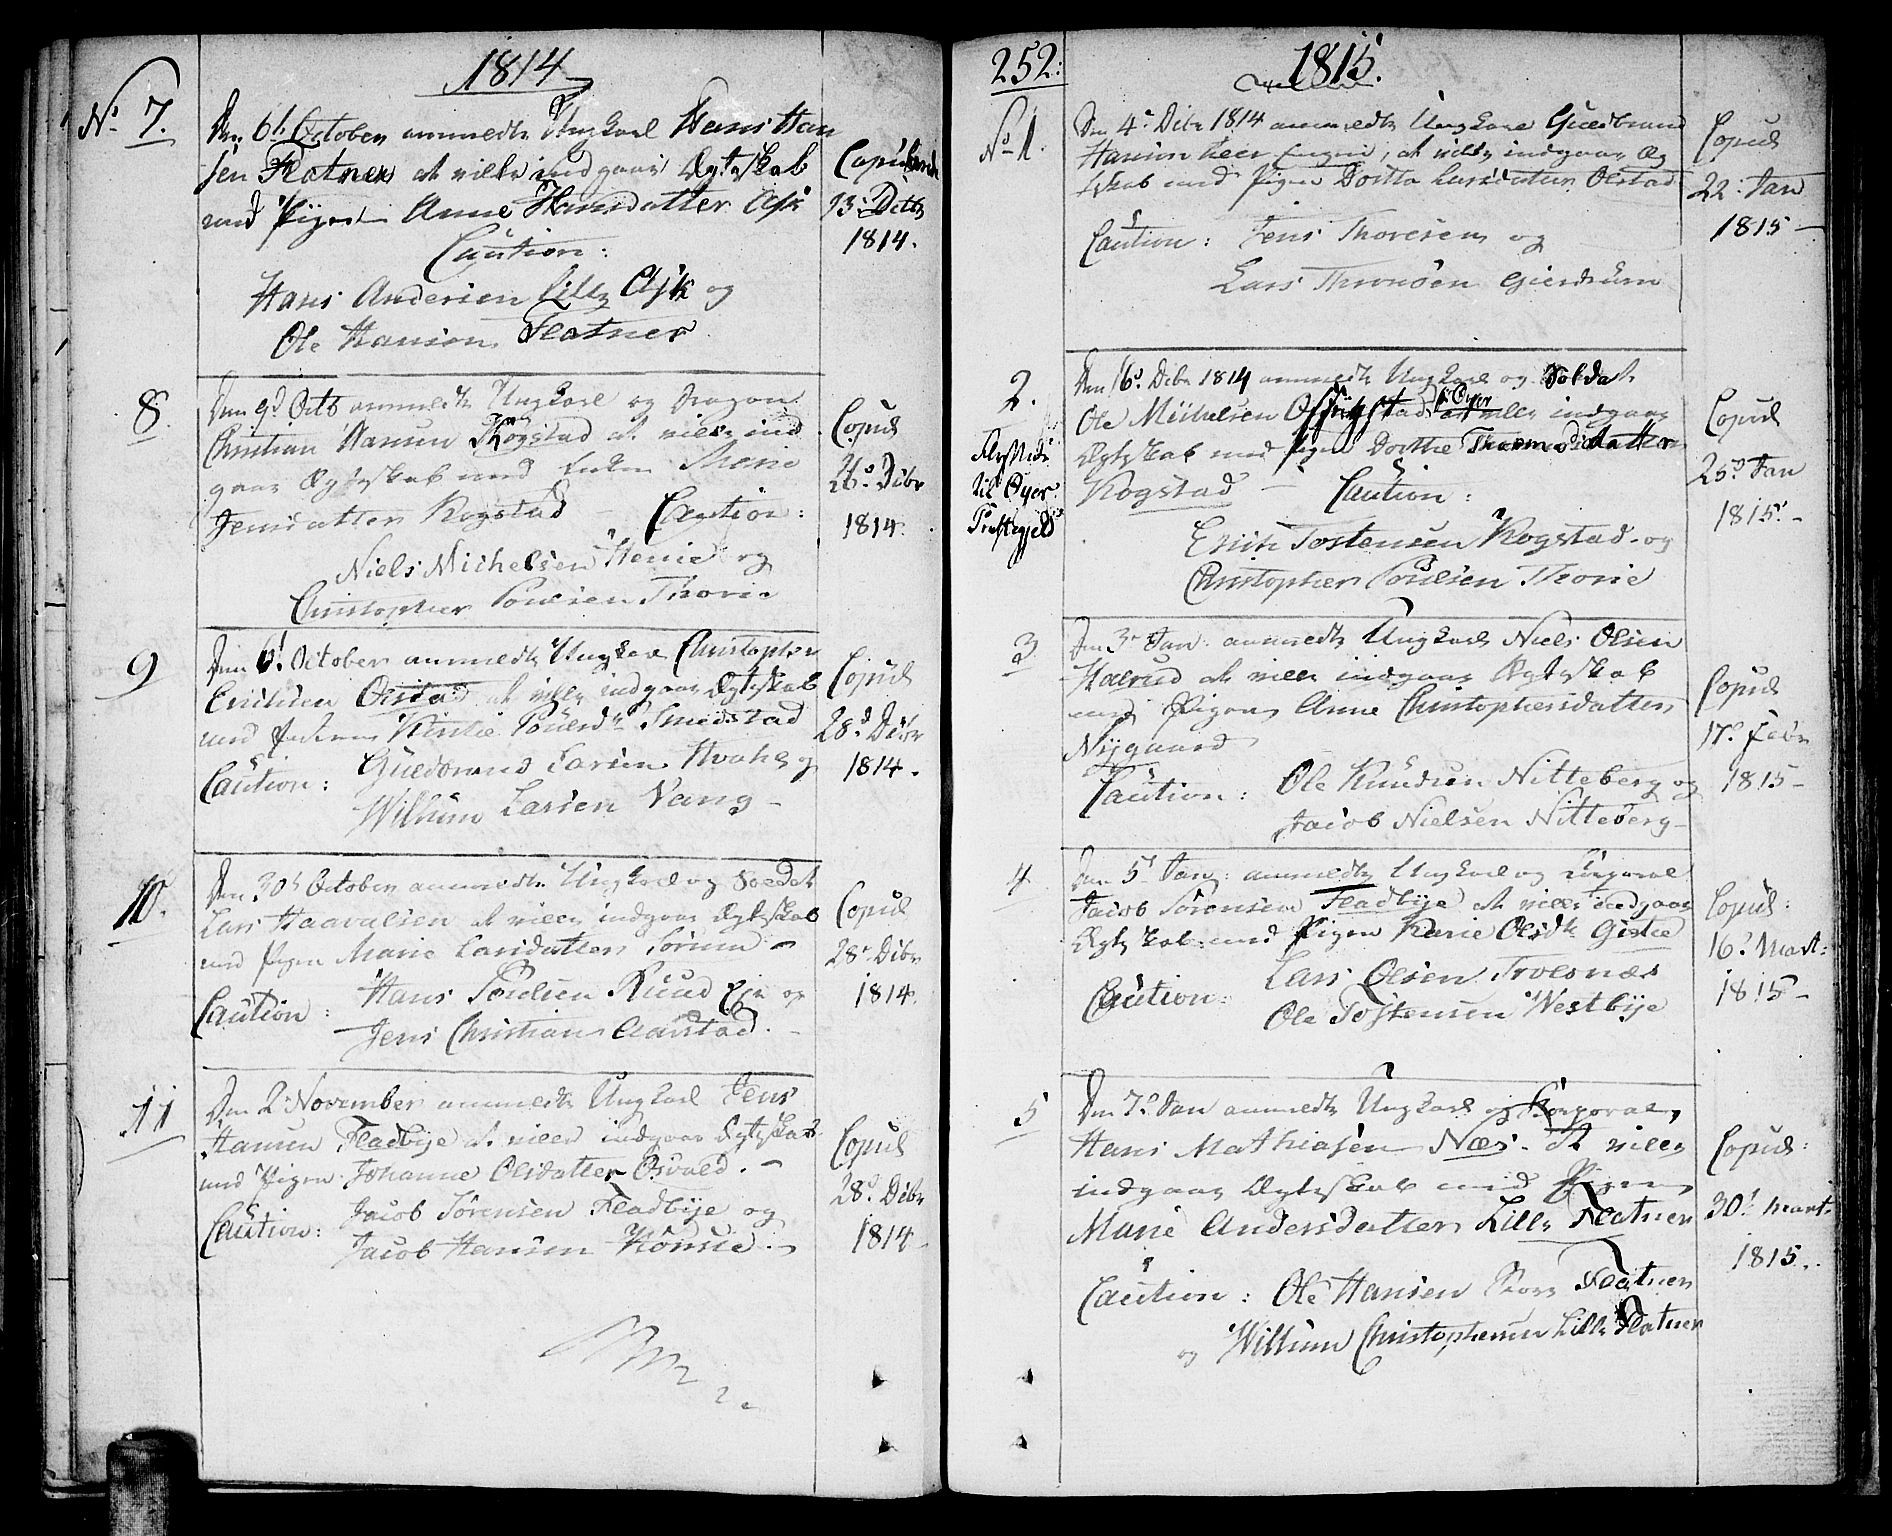 1814
No 7.
Den 6t October anmeldte Ungkarl Hans Han
sen Flatner at ville indgaae Ægteskab
med Pigen Anne Hansdatter Ask
Caution:
Hans Andersen Lille Ask og
Ole Hansen Flatner.
Copulerede
13: Decbr
1814.
8.
Den 9d Octb anmeldte Ungkarl og Dragon
Christian Hansen Kogstad at ville ind
gaae Ægteskab med Enken Marie
Jensdatter Kogstad Caution:
Niels Michelsen Henie og
Christopher Poulsen Throne
Copul
26: Dcbr
1814.
9
Den 6t October anmeldte Ungkarl Christopher
Erichsen Olstad at ville indgaae Ægteskab
med Kirstie Poulsdtr Smedstad
Caution: Guldbrand Larsen Hvahl og
Willum Larsen Vang
Copul
28d Dcbr
1814.
10.
Den 30t October anmeldte Ungkarl og Soldat
Lars Haavalsen at ville indgaae Ægteskab
med Pigen Marie Larsdatter Sørum
Caution: Hans Poulsen Ruud Eje og
Jens Christian Aamstad.
Copul
28 Dcbr
1814.
11
Den 2 November anmeldte Ungkarl Jens
Hansen Fladbÿe at ville indgaae Ægteskab
med Pigen Johanne Olsdatter Asvald.
Caution: Jacob Sørensen Fladbÿe og
Jacob Hansen Kønsie.
Copul
28d Dcbr
1814
252:
1815.
No 1.
Den 4d Dcbr 1814 anmeldte Ungkarl Guldbrand
Hansen Leer at ville indgaae Æg
teskab med Pigen Dorthe Larsdatter Olstad
Caution: Jens Thoresen og
Lars Thronsen Gierdrum
Copul
22: Jan
1815
2.
Flyttede
til Øyer
Præstegjeld
Den 16d Dcbr 1814 anmeldte Ungkarl og Soldat
Ole Michelsen i Øyer at ville indgaae
Ægteskab med Pigen Dorthe Thormodsdatter
Kogstad Caution:
Erich Tostensen Kogstad og
Christopher Poulsen Throne
Copul
25d Jan
1815.
3
Den 3 Jan: anmeldte Ungkarl Niels Olsen
Halrud at ville indgaae Ægteskab
med Pigen Anne Christophersdatter
Nÿgaard
Caution: Ole Knudsen Nitteberg og
Jacob Nielsen Nitteberg
Copul
17d Febr
1815
4
Den 5t Jan: anmeldte Ungkarl og Corporal
Jacob Sørensen Fladbÿe at ville indgaae
Ægteskab med Pigen Karie Olsdtr Gistie
Caution: Lars Olsen Troesnæs
Ole Tostensen Westbÿe
Copul:
16d Mart:
1815
5
Den 7d Jan anmeldte Ungkarl og Korporal
Hans Mathiasen Næs at ville
indgaae Ægteskab med Pigen
Marie Andersdatter Lille Flatner
Caution: Ole Hansen Store Flatner
og Willum Christophersen Lille Flatner
Copul:
30t Mart:
1815.